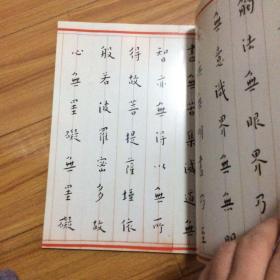 觸法無眼界乃
無意識界無
盡無苦集滅道無
智亦無得以無所
得故菩提薩埵依
般若波羅蜜多故
心無罣礙無罣礙